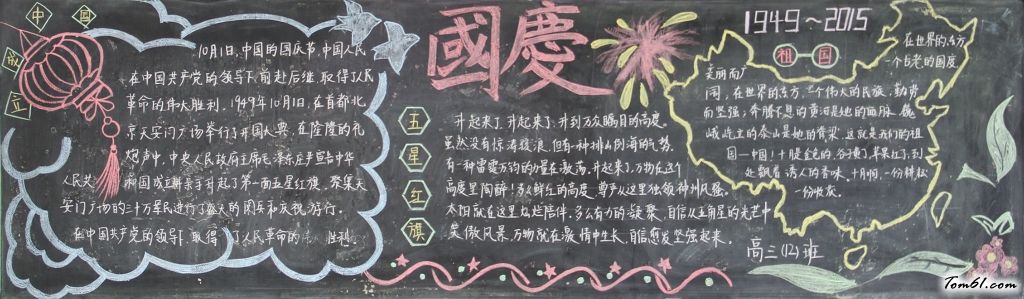 中国成立
10月1日,中国的国庆节,中国人民
在中国共产党的领导下,前赴后继,取得了人民
革命的伟大胜利。1949年10月1日,在首都北
京天安门广场举行了开国大典,在隆隆的礼
炮声中,中央人民政府主席毛泽东庄严宣告中华
人民共和国成立并亲手升起了第一面五星红旗。聚集天
安门广场的三十万军民进行了盛大的阅兵和庆祝游行。
在中国共产党的领导下,取得了人民革命的 胜利
國慶
五星红旗
升起来了,升起来了,升到万众瞩目的高度。
虽然没有惊涛骇浪,但有一种排山倒海的气势。
有一种雷霆万钧的力量在激荡。升起来了,万物在这个
高度里陶醉!多么鲜红的高度,尊严从这里独领神州风骚。
太阳就在这里灿烂陪伴。多么有力的凝聚,自信从五角星的光芒中
笑傲风景。万物就在激情中生长,自信愈发坚强起来。
1949~2015
祖国
在世界的东方
一个古老的国度
美丽而广
阔,在世界的东方,一个伟大的民族,勤劳
而坚强,奔腾不息的黄河是她的血脉,巍
峨屹立的泰山是她的脊梁,这就是我们的祖
国—中国!十月金色的,谷子黄了,苹果红了,到
处飘着诱人的香味,十月啊,一份耕耘
一份收获。
高三(12)班
Tom61.com